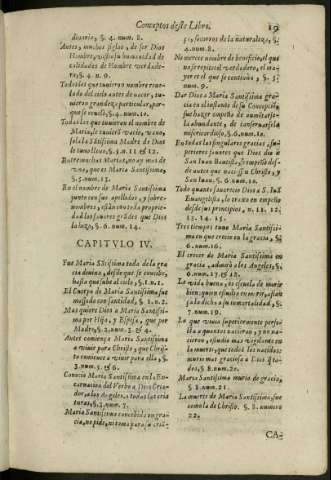 Conceptos deste Libro. 19
diuario, §. 4. num. 8.
Antes, muchos siglos, de ser Dios
Hombre,
calidades de Hombre verdade-
ro, §. 4. n. 9.
Todos los que tuuieron nombre
do del cielo antes de nacer, tu-
uieron grandeza particular, por-
que lo reueló, §. 4. num. 10.
Todos los que tuuieron el nombre de
Maria, le tuuieron vacio, vano,
solo la SS.ma Madre de Dios
le tuuo lleno, §. 5. n. 11. y 12.
Entre muchas Marias, no ay mas de
vna, que es Maria Santissima,
§. 5. num. 13.
En el nombre de Maria Santissima
junto con sus apellidos, y sobre-
nombres, están con toda proprie-
dad los fauores grandes que Dios
la hizo, §. 6. num. 14.
CAPITVLO IV.
Fue Maria SS.issima toda de la gra
cia diuina, desde que se concibe,
hasta que sube al cielo, §. 1. n. 1.
El Cuerpo de Maria Santissima, fue
massado con santidad, §. 1. n. 2.
Mas quiere Dios a Maria Santissi-
ma por Hija, y Esposa, que por
Madre, §. 2. num. 3. y 4.
Antes comiença Maria Santissima
a viuir para Christo, que Chri-
sto comience a viuir para ella, §.
3. num. 5. y 6.
Conocía Maria Santissima en la En-
carnacion del Verbo a Dios Cria-
dor, a los Angeles, a todas las cria
turas, §. 3. num. 7.
Maria Santissima concebida en gra-
cia, no pide, ni toma para su cria-
ça, socorros de la naturaleza, §.
4. num. 8.
No merece nombre de beneficio, el que
no se repite al verdadero, el ma-
yor es el que se continúa, §. 5.
num. 9.
Dar Dios a Maria Santissima gra-
cia en el instante de su Concepcion,
fue hazer empeño de aumentar-
la abundante, de conseruarsela
misericordioso, §. 6. num. 10.
En todas las singulares gracias, y fa-
uores mayores que Dios dio a
San Iuan Bautista, se empeñó des-
de antes que naciesse Christo, y
San Iuan, §. 6. num. 11.
Todo quanto fauorecio Dios a S. Iuã
Euangelista, lo traxo en empeño
desde sus principios, n. 11. 12.
13. 14. 15.
Tres tiempos tuuo Maria Santissi-
ma en que crecer en la gracia, §.
6. num. 16.
El crecer de Maria Santissima en
gracia, admiró a los Angeles, §.
6. num. 17. y 18.
La vida buena, es escuela de morir
bien, quien estudia en morir, assegu-
ra la dicha a su inmortalidad, §.
7. num. 19.
Lo que viuia superiormente perfec-
ta a quantos nacieron, y en nacer
en
la muerte, que todos los nacidos
mueren mas gracioso a los ojos
de Dios, §. 8. num. 20.
Maria Santissima muria de gracia,
§. 8. num. 21.
La muerte de Maria Santissima fue
como la de Christo. §. 8. numero
22.
CA-